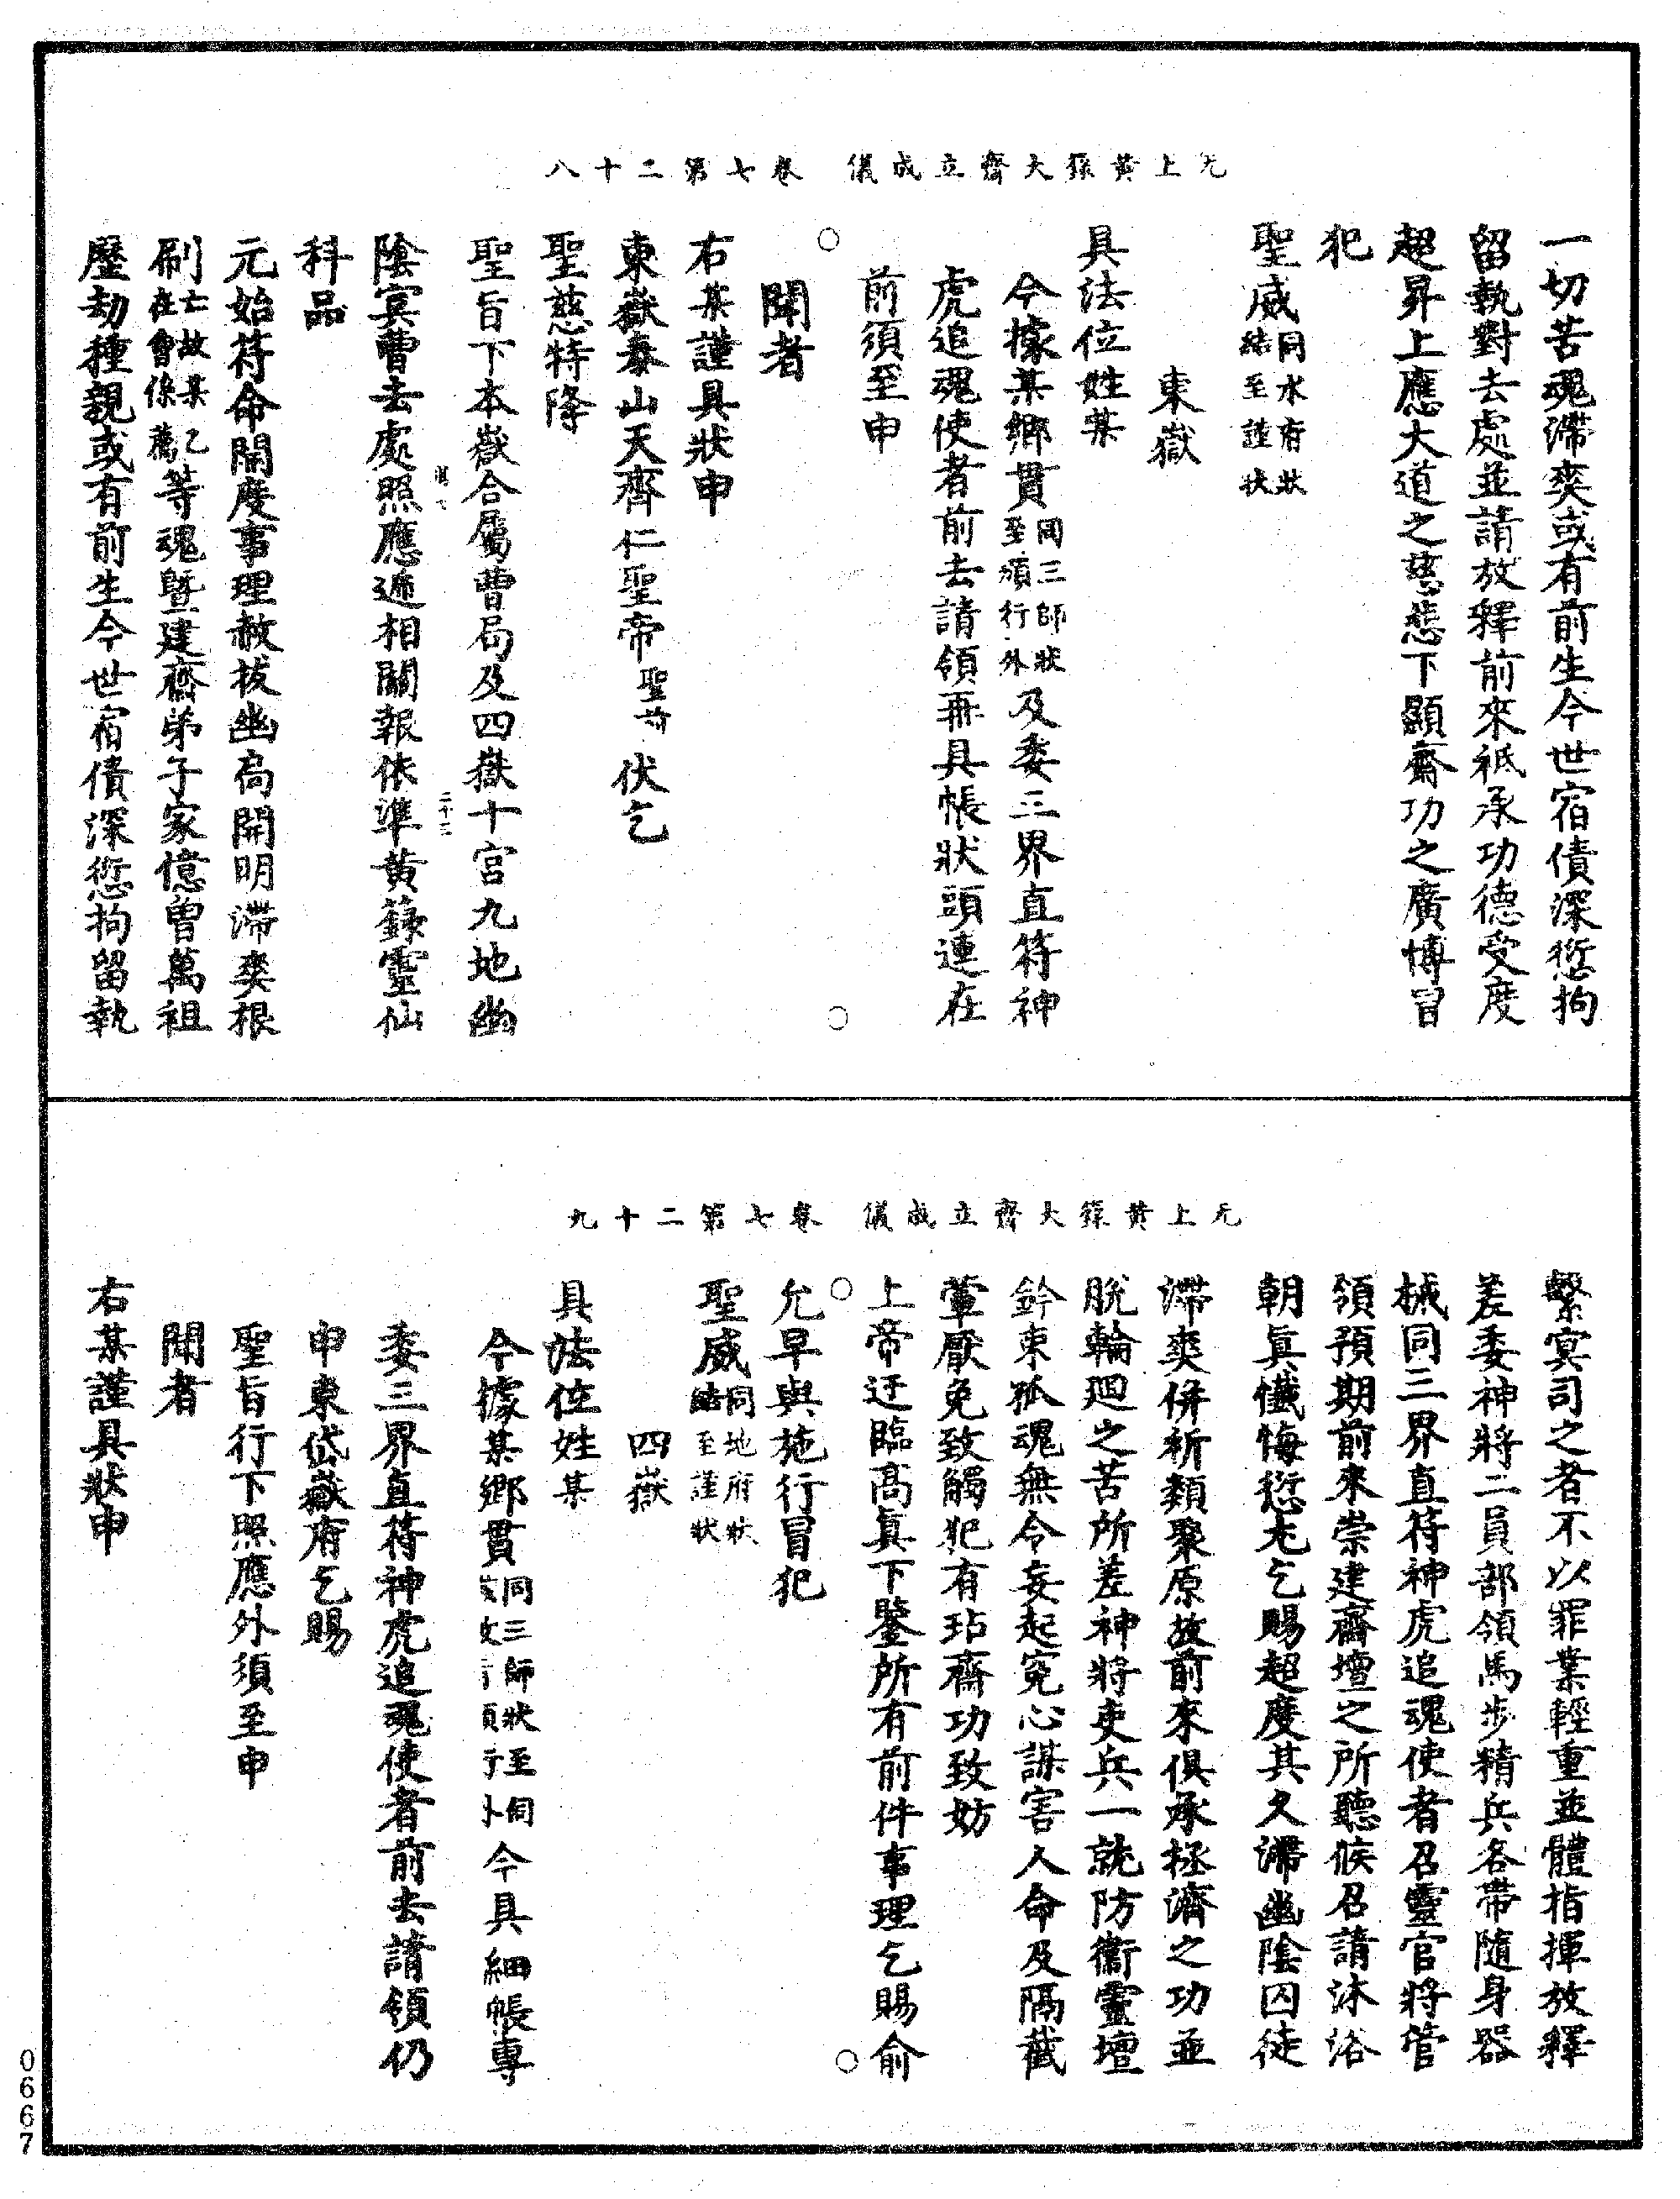 无上黃籙大齋立成儀　卷七第二十八
一切苦魂滯爽或有前生今世宿債深愆拘
留執對去處並請放釋前來祗承功德受度
超昇上應大道之慈悲下顯齋功之廣博冒
犯
聖威同水府狀結至謹狀
東嶽
具法位姓某
今據某鄉貫同三師狀至須行外及委三界直符神
虎追魂使者前去請領再具帳狀頭連在
前須至申
聞者
右某謹具狀申
東嶽泰山天齊仁聖帝聖前伏乞
聖慈特降
聖旨下本嶽合屬曹局及四嶽十宮九地幽
二十三
陰冥曹去處照應遞相關報依準黃籙靈仙
科品
元始符命開度事理赦拔幽扃開明滯爽根
刷亡故某乙在會係薦等魂曁建齋弟子家億曾萬祖
歷劫種親或有前生今世宿債深愆拘留執
无上黃籙大齋立成儀　卷七第二十九
繫冥司之者不以罪業輕重並體指揮放釋
差委神將二員部領馬步精兵各帶隨身器
械同三界直符神虎追魂使者召靈官將管
領預期前來崇建齋壇之所聽候召請沐浴
朝眞懺悔愆尤乞賜超度其久滯幽陰囚徒
滯爽併祈類聚原故前來俱承拯濟之功並
脫輪迴之苦所差神將吏兵一就防衞靈壇
鈐束孤魂無令妄起寃心謀害人命及隔截
葷厭免致觸犯有玷齋功致妨
上帝迂臨高眞下鑒所有前件事理乞賜俞
允早與施行冒犯
聖威同地府狀結至謹狀
四嶽
具法位姓某
今據某鄉貫同三師狀至同行外今具細帳專
委三界直符神虎追魂使者前去請領仍
申東岱嶽府乞賜
聖旨行下照應外須至申
聞者
右某謹具狀申
0667